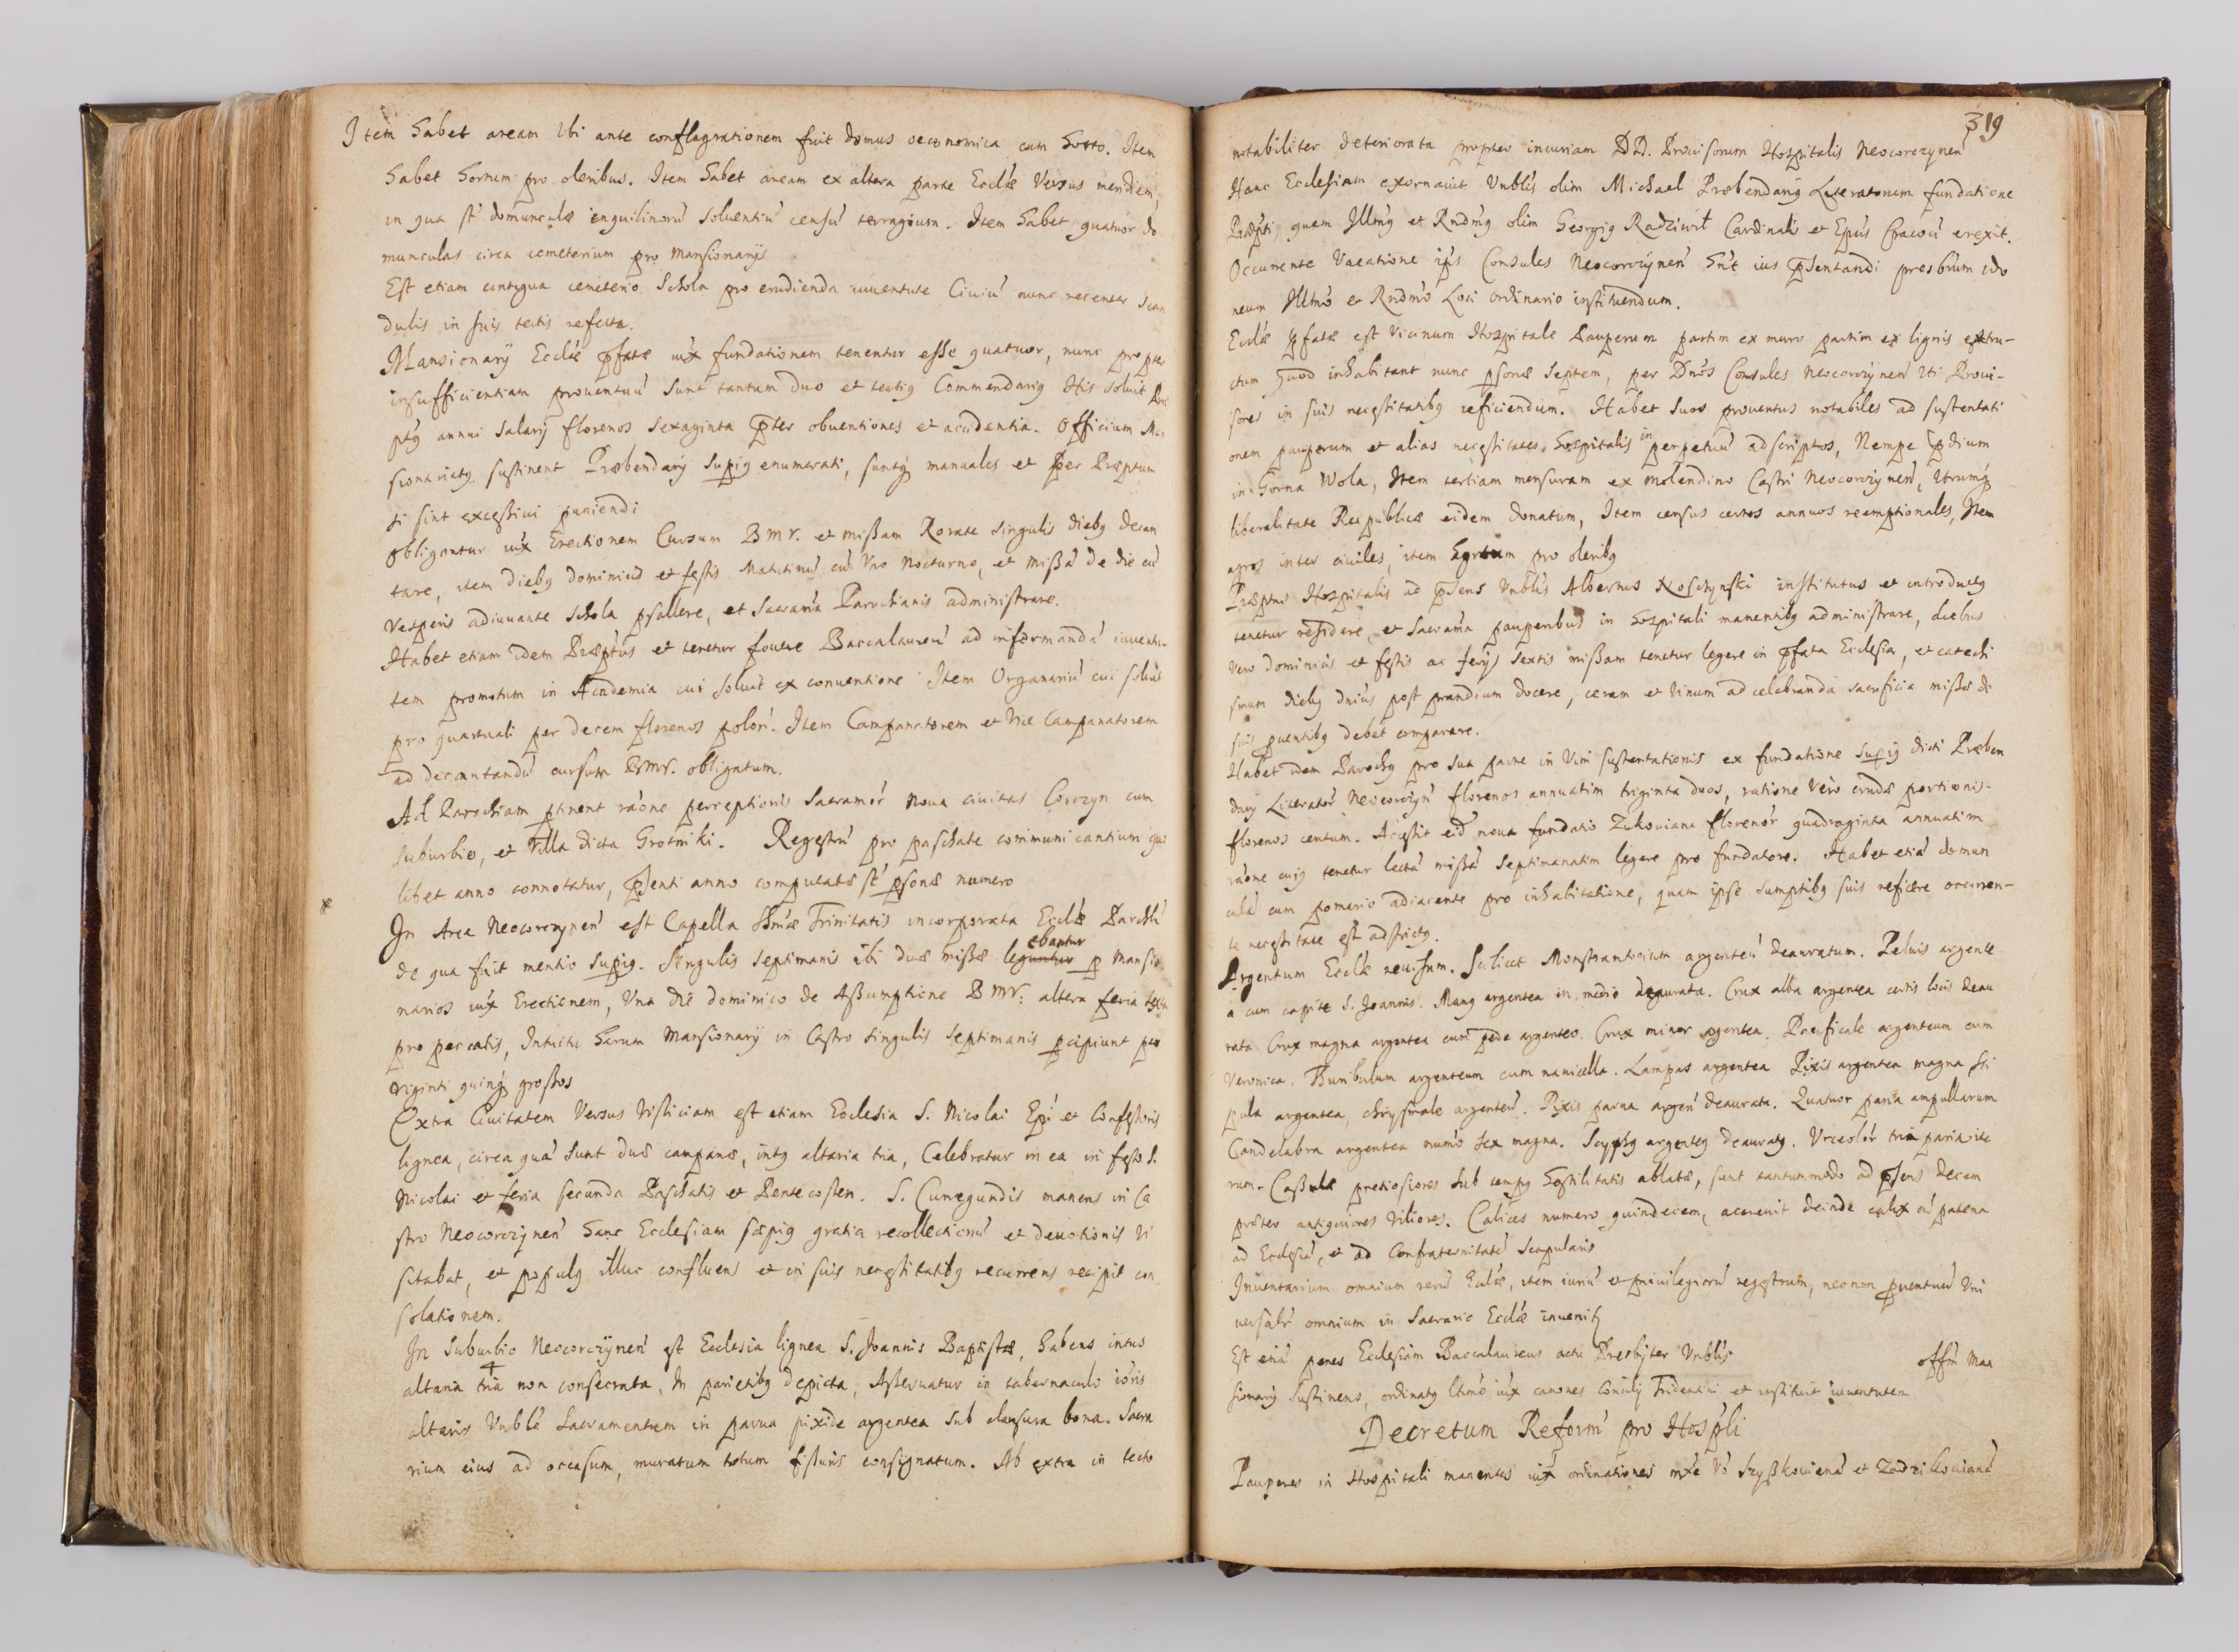 Item habet aream Vbi ante conflagrationem fuit domus oeconomica cum horto. Item
habet hortum pro oleribus. Item habet aream ex altera parte Eccłæ Versus meridiem,
in qua st́ domunculæ inquilinorú soluentiú censú terragium. Item habet quatuor do
munculas circa cemeterium pro Mansionarijs
Est etiam contigua cemeterio Schola pro erudienda iuuentute Ciuiú nunc recenter scan
dulis in suis tectis refecta.
Mansionarij Eccłæ pfatæ iux̃ fundationem tenentur esse quatuor, nunc propter
insufficientiam prouentuú sunt tantum duo et tertiꝯ Commendariꝯ His soluit Præ
ptꝯ annui Salarij florenos sexaginta pter obuentiones et accidentia. Officium Man
sionariatꝯ sustinent Præbendarij supiꝯ enumerati, suntꝙ manuales et per Præptum
si sint excessiui puniendi
Obligantur iux̃ Erectionem Cursum BMV. et missam Rorate singulis diebꝯ decan
tare, item diebꝯ dominicis et festis Matutinú cú Vno Nocturno, et missá de die cú
Vesperis adiuuante schola psallere, et Sacram̃a Parochianis administrare.
Habet etiam idem Præptús et tenetur fouere Baccalaureú ad informandá iuuentu-
tem promotum in Academia cui soluit ex conuentione Item Organariú cui soluit
pro quartuali per decem florenos polon̄. Item Campanatorem et Vice Campanatorem
ad decantandú cursum BMV. obligatum.
Ad Parochiam ptinent raóne perceptionis Sacramór Noua ciuitas Corczyn cum
suburbio, et Villa dicta Grotniki. Regestrú pro paschate communicantium quo
libet anno connotatur, pśenti anno computatæ st́ psonæ numero
In Arce Neocorczynen̄ est Capella Sśmæ Trinitatis incorporata Eccłæ Parochłi
de qua fuit mentio supiꝯ. Singulis septimanis ibi duæ missæ leguntur ebantur p Mansio
narios iux̃ Erectionem, Vna dié dominico de Assumptione BMV. altera feria
pro peccatis, Intuitu harum Mansionarij in Castro singulis septimanis pcipiunt per
viginti quinꝙ grossos
Extra Ciuitatem Versus Visliciam est etiam Ecclesia S. Nicolai Epí et Confessoris
lignea, circa quá sunt duæ campanæ, intꝯ altaria tria, Celebratur in ea in festo S.
Nicolai et feria secunda Paschatis et Pentecosten. S. Cunegundis manens in Ca
stro Neocorczynen̄ hanc Ecclesiam sæpiꝯ gratia recollectionú et deuotionis vi
sitabat, et populꝯ illuc confluens et in suis necessitatibꝯ recurrens recipit con
solationem.
In Suburbio Neocorczynen̄ est Ecclesia lignea S. Joannis Baptistæ, habens intus
altaria tria non consecrata, in parietibꝯ depicta, Asseruatur in tabernaculo ioris
altaris Vnblé Sacramentum in parua pixide argentea sub clausura bona. Sacra
rium eius ad occasum, muratum totum fissuris consignatum. Ab extra in tecto
319
notabiliter deteriorata propter incuriam DD. Prouisorum Hospitalis Neocorczynen̄
Hanc Ecclesiam exornauit Vnblís olim Michael Præbendariꝯ Literatorum fundatione
Præpti, quem Illmꝯ et Rndmꝯ olim Georgiꝯ Radziwił Cardinalis et Epús Cracou̇ erexit.
Occurrente Vacatione ipś Consules Neocorczynen̄ hńt ius psentandi presbrum ido
neum Illmó et Rndmó Loci ordinario instituendum.
Eccłæ pfatæ est Vicinum Hospitale Pauperum partim ex muro partim ex lignis extru-
ctum quod inhabitant nunc psonæ septem, per Dnós Consules Neocorczynen̄ Vti Proui-
sores in suis necessitatibꝯ reficiendum. Habet suos prouentus notabiles ad sustentati
onem pauperum et alias necessitates hospitalis in perpetuú adscriptos, Nempe pdium
in Gorna Wola, Item tertiam mensuram ex molendino Castri Neocorczynen̄, Vtrumꝙ
liberalitate Reipublicæ eidem donatum, Item census certos annuos reemptionales, Item
agros inter ciuiles, item hortum pro oleribꝯ
Præptus Hospitalis ad psens Vnblís Albertus Koschynski institutus et introductꝯ
tenetur residere, et Sacram̃a pauperibus in hospitali manentibꝯ administrare, diebus
vero dominicis et festis ac ferijs sextis missam tenetur legere in pfata Ecclesia, et catechi
smum diebꝯ dnicis post prandium docere, ceram et Vinum ad celebranda sacrificia missæ de
suis puentibꝯ debet comparare.
Habet idem Parochꝯ pro sua parte in Vim sustentationis ex fundatione supiꝯ dicti Præben
darij Literator̄ Neocorczyn̄ florenos annuatim triginta duos, ratione Vero crudæ portionis
florenos centum. Accessit eid̄ noua fundatio Zukouiana florenór quadraginta annuatim
raóne cuiꝯ tenetur lectá missá septimanatim legere pro fundatore. Habet etiá domun
culá cum pomario adiacente pro inhabitatione, quam ipse sumptibꝯ suis reficere occurren-
te necessitate est adstrictꝯ.
Argentum Eccłæ reuisum. Scilicet Monstrantorium argenteú deauratum. Peluis argente
a cum capite S. Joannis. Manꝯ argentea in medio deaurata. Crux alba argentea certis locis deau
rata Crux magna argentea cum pede argenteo. Crux minor argentea. Pacificale argenteum cum
Veronica. Thuribulum argenteum cum nauicella. Lampas argentea Pixis argentea magna sti
pula argentea, chrysmale argenteú. Pixis parua argen̄ deaurata. Quatuor paria ampullarum
Candelabra argentea numo sex magna. Scyphꝯ argenteꝯ deauratꝯ. Vrceolór tria paria ite
rum. Casulæ pretiosiores sub tempꝯ hostilitatis ablatæ, sunt tantummodo ad psens decem
præter antiquiores viliores. Calices numero quindecem, acreuit deinde calix cú patena
ad Ecclesiá, et ad Confraternitaté Scapularis
Inuentarium omnium rerú Eccłæ, item iuriú et priuilegiorú regestrum, necnon puentuú Vni
uersalr̄ omnium in Sacrario Eccłæ inuenitꝫ
Est etiá penes Ecclesiam Baccalaureus actu Presbyter Vnblís offm̄ Man
sionarij sustinens, ordinatꝯ ltimé iux̃ canones Concilij Tridentini et instituit iuuentutem
Decretum Reform̄ pro Hosplí
Pauperes in Hospitali manentes iux̃ ordinationes Szyszkouianá et Zadzikouianá